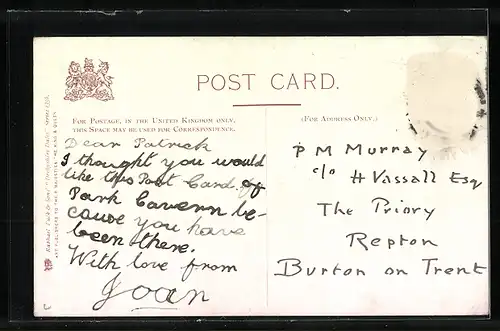 POST CARD.
FOR POSTAGE, IN THE UNITED KINGDOM ONLY,
THIS SPACE MAY BE USED FOR CORRESPONDENCE.
(FOR ADDRESS ONLY.)
Dear Patrick
I thought you would
like this Post Card of
Park Cavern be-
cause you have
been there.
With love from
Joan
P M Murray
c/o H Vassall Esq
The Priory
Repton
Burton on Trent
Raphael Tuck & Sons'